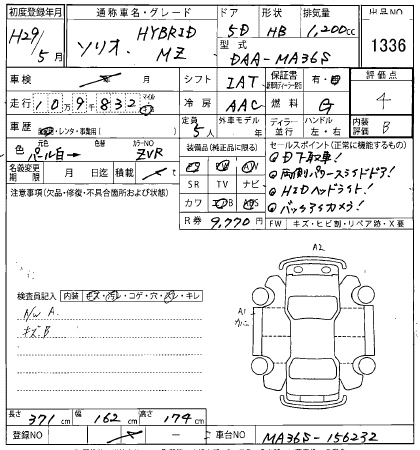 初度登録年月 通称車名・グレード ドア 形状 排気量 出品NO
H29年 5月 ソリオ HYBRID MZ 5D HB 1,200cc 1336
型式 DAA-MA36S
車検 月 シフト IAT 保証書 有・ 評価点 4
走行 109,832 マイル 冷房 AAC 燃料 G 内装評価 B
車歴 レンタ・事業用 定員 5人 外車モデル 年 ディーラー 並行 ハンドル 左・右
色 パール白→ 色替 カラーNO ZVR
装備品(純正品に限る) セールスポイント(正常に機能するもの)
名義変更期限 月 日迄 積載 t
SR TV ナビ
カワ
R券 9,770円
D下取車!
両側パワースライドドア!
HIDヘッドライト!
バックアイカメラ!
注意事項(欠品・修復・不具合箇所および状態)
FW キズ・ヒビ割・リペア跡・X要
検査員記入 内装 キズ・汚レ・コゲ・穴・スレ・キレ
A/W A
キズB
A2
A1
長さ 371cm 幅 162cm 高さ 174cm
登録NO 車台NO MA36S-156232